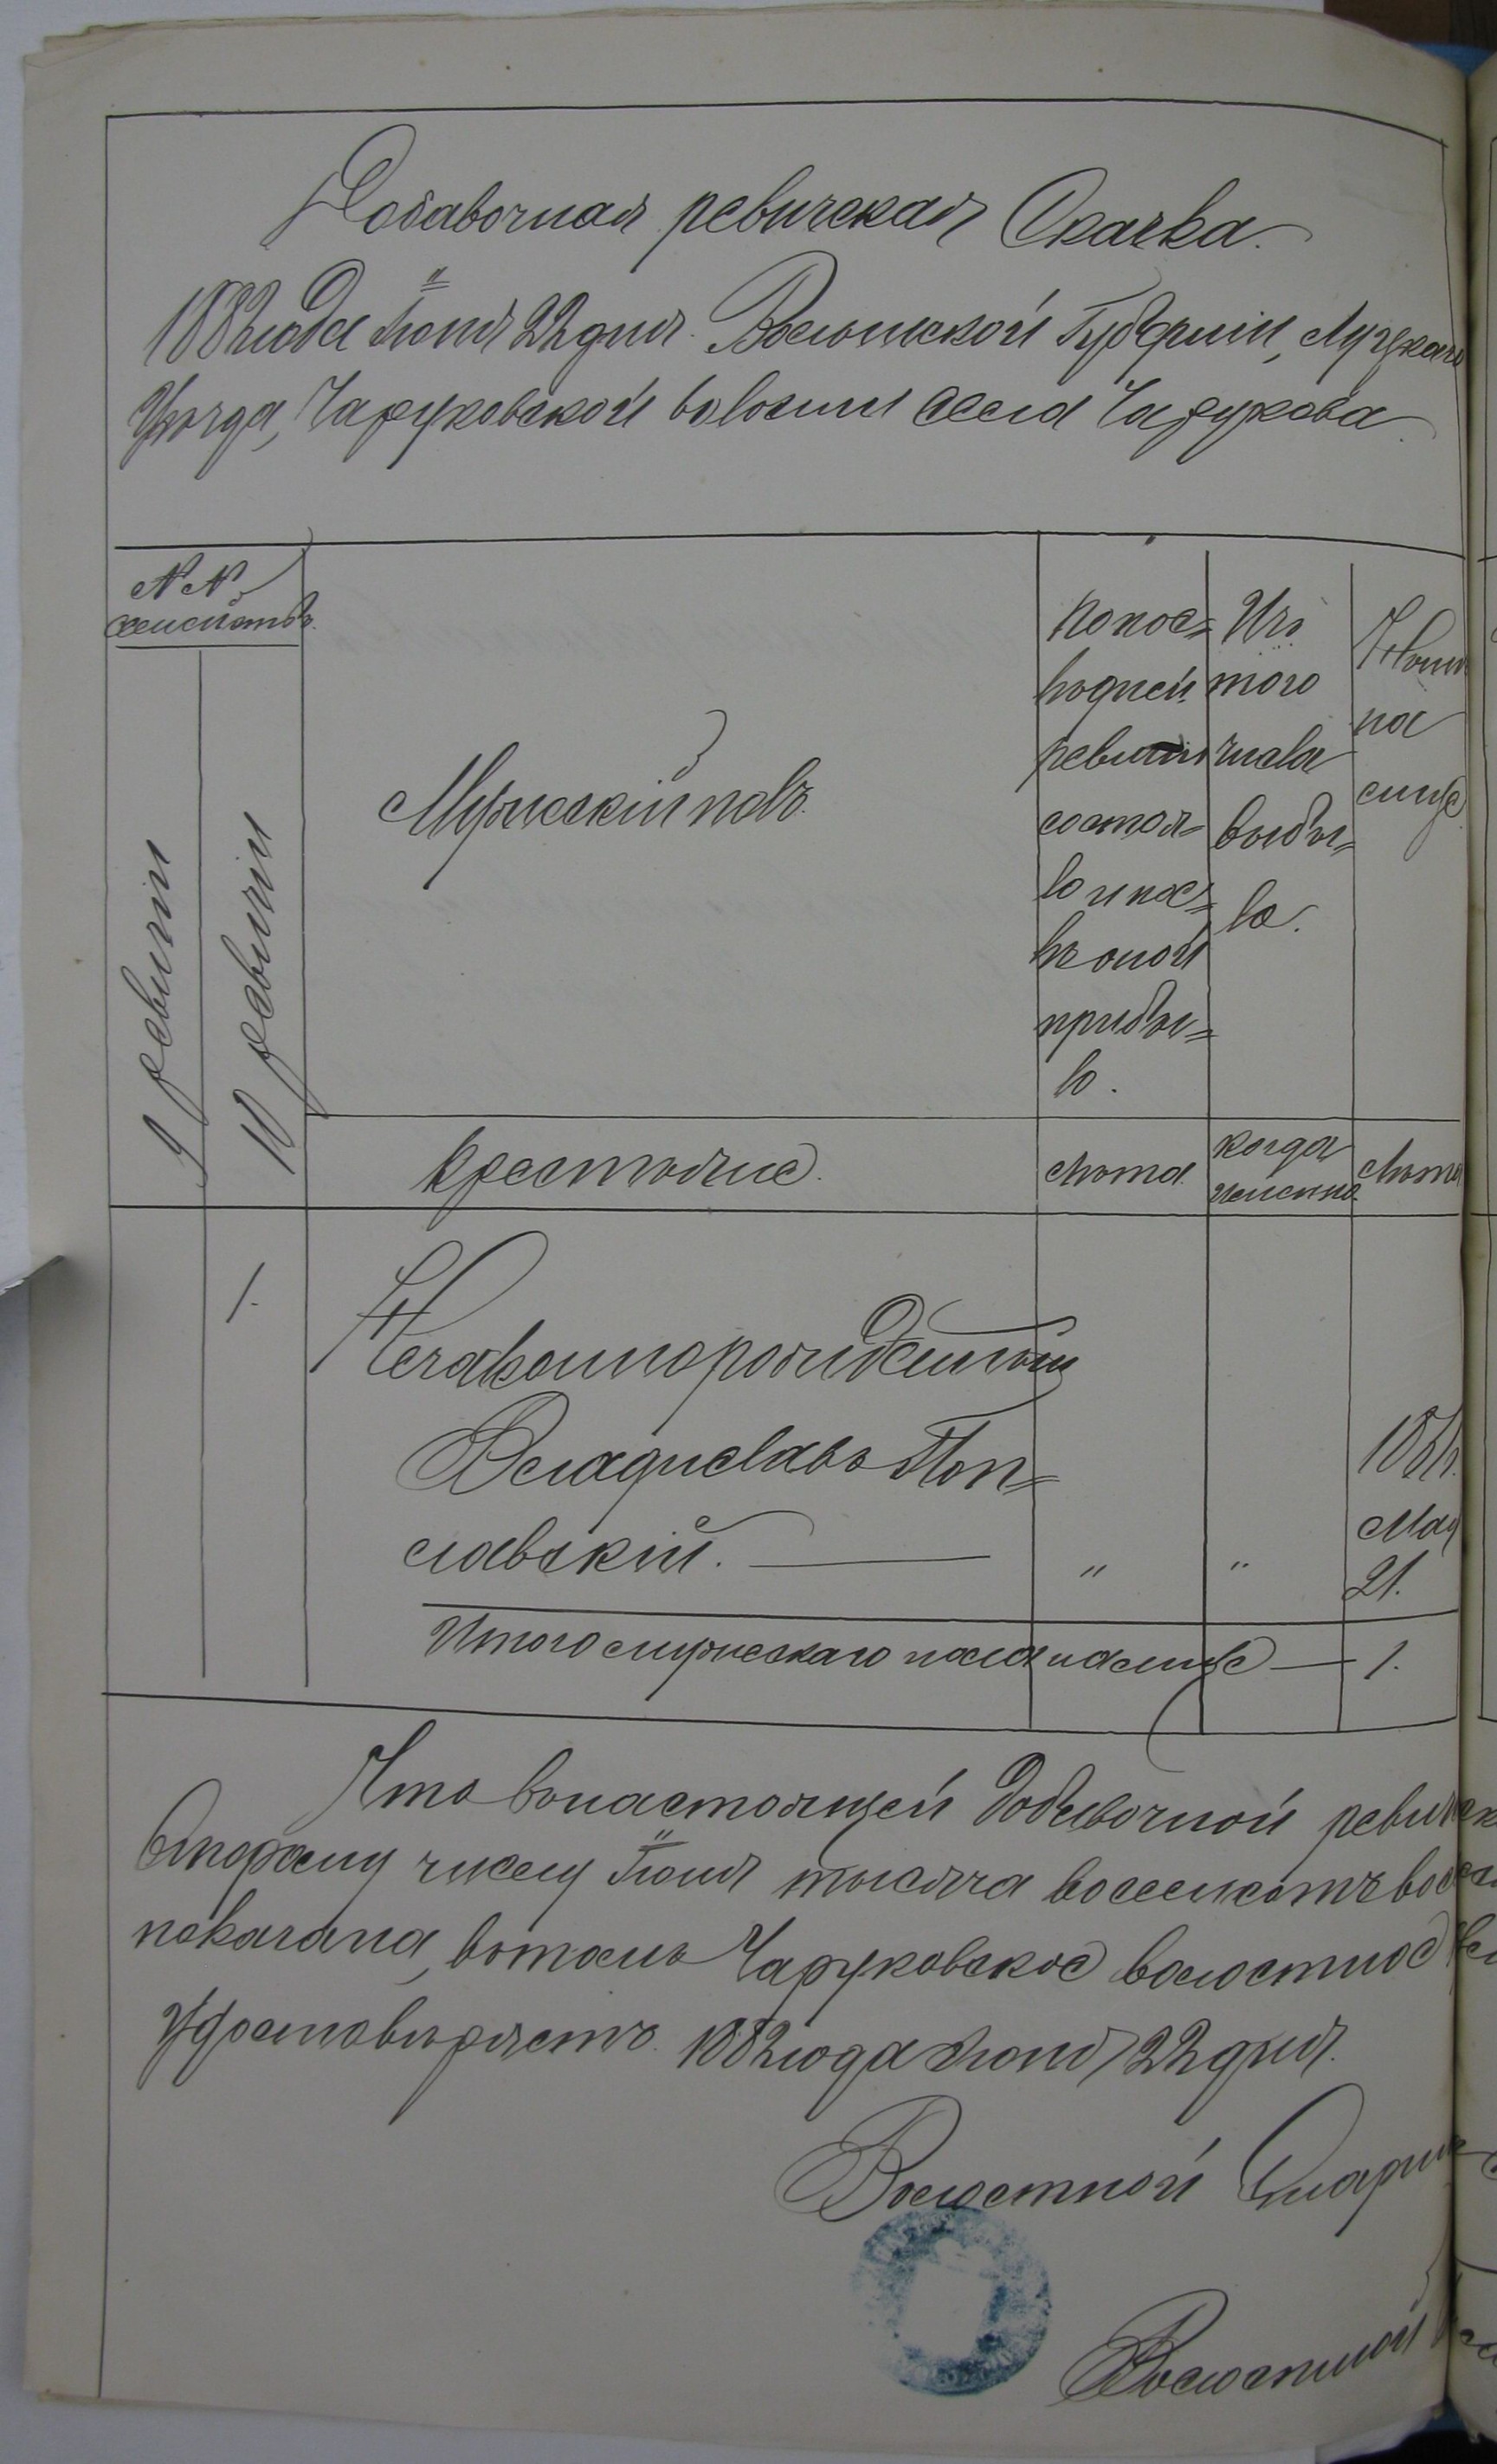 Добавочная ревизская Сказка.
1882 года Іюня 22 дня. Волынской Губерніи, Луцкаго
Уѣзда, Чаруковской волости села Чарукова.
№ №
семействъ.
9 ревизіи
10 ревизіи
Мужескій полъ.
По пос=
лѣдней
ревизіи
состоя=
ло и пос=
лѣ оной
прибы=
ло.
Изъ
того
числа
выбы=
ло.
Нынѣ
на
лицѣ
Крестьяне.
Лѣта.
Когда
именно.
Лѣта
1.
Незаконнорожденный
Владиславъ Поп=
лавскій.
"
"
Мая
21.
Итого мужескаго пола на лицѣ — 1.
Что въ настоящей добавочной
второму числу Іюня тысяча восемсотъ
показана, въ томъ Чаруковское волостное
удостовѣряетъ. 1882 года Іюня 22 дня.
Волостной
Волостной